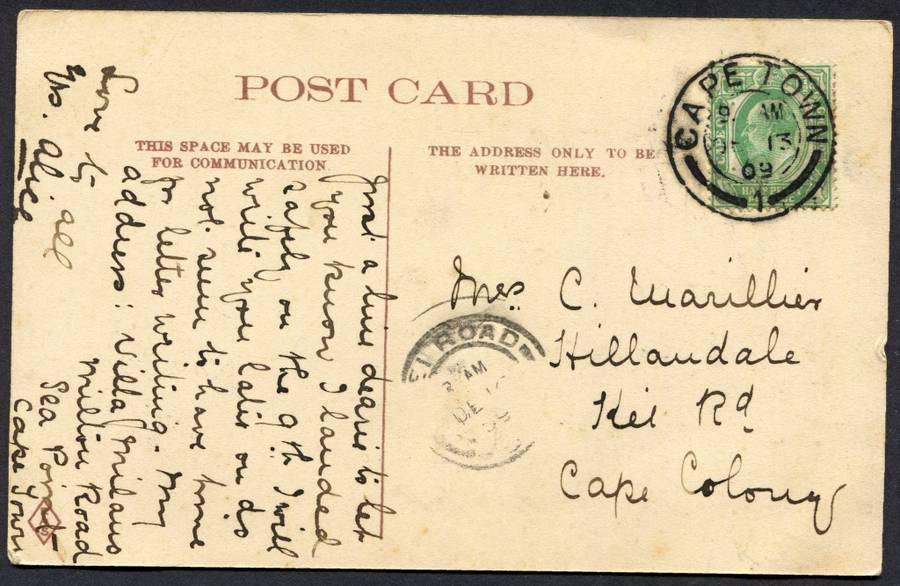 POST CARD
THIS SPACE MAY BE USED
FOR COMMUNICATION.
THE ADDRESS ONLY TO BE
WRITTEN HERE.
CAPE TOWN
AM
13
09
1
HALF PENNY
Mrs C. Marillier
Hillandale
Kei Rd
Cape Colony
EI ROAD
AM
DE
09
Just a line dearie to let
you know I landed
safely on the 9th I will
write you later on do
not seem to have time
for letter writing. My
address: Villa Milano
Milton Road
Sea Point
Cape Town
Love to all
Yrs. Alice